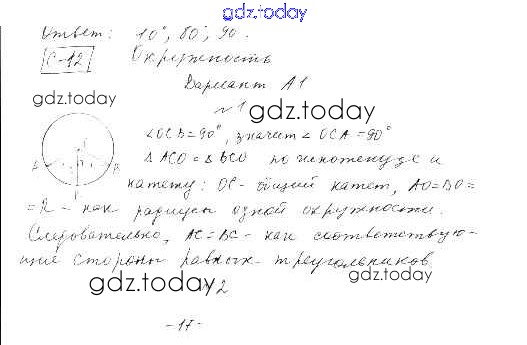 gdz.today
Ответ: 10°, 80°, 90°.
С-12 Окружность
Вариант А1
gdz.today
№1 gdz.today
∠OCB=90°, значит ∠OCA=90°
△ACO=△BCO по гипотенузе и
катету: OC - общий катет, AO=BO=
=R - как радиусы одной окружности.
Следовательно, AC=BC - как соответствую-
щие стороны равных треугольников
gdz.today gdz.today
№2
-17-